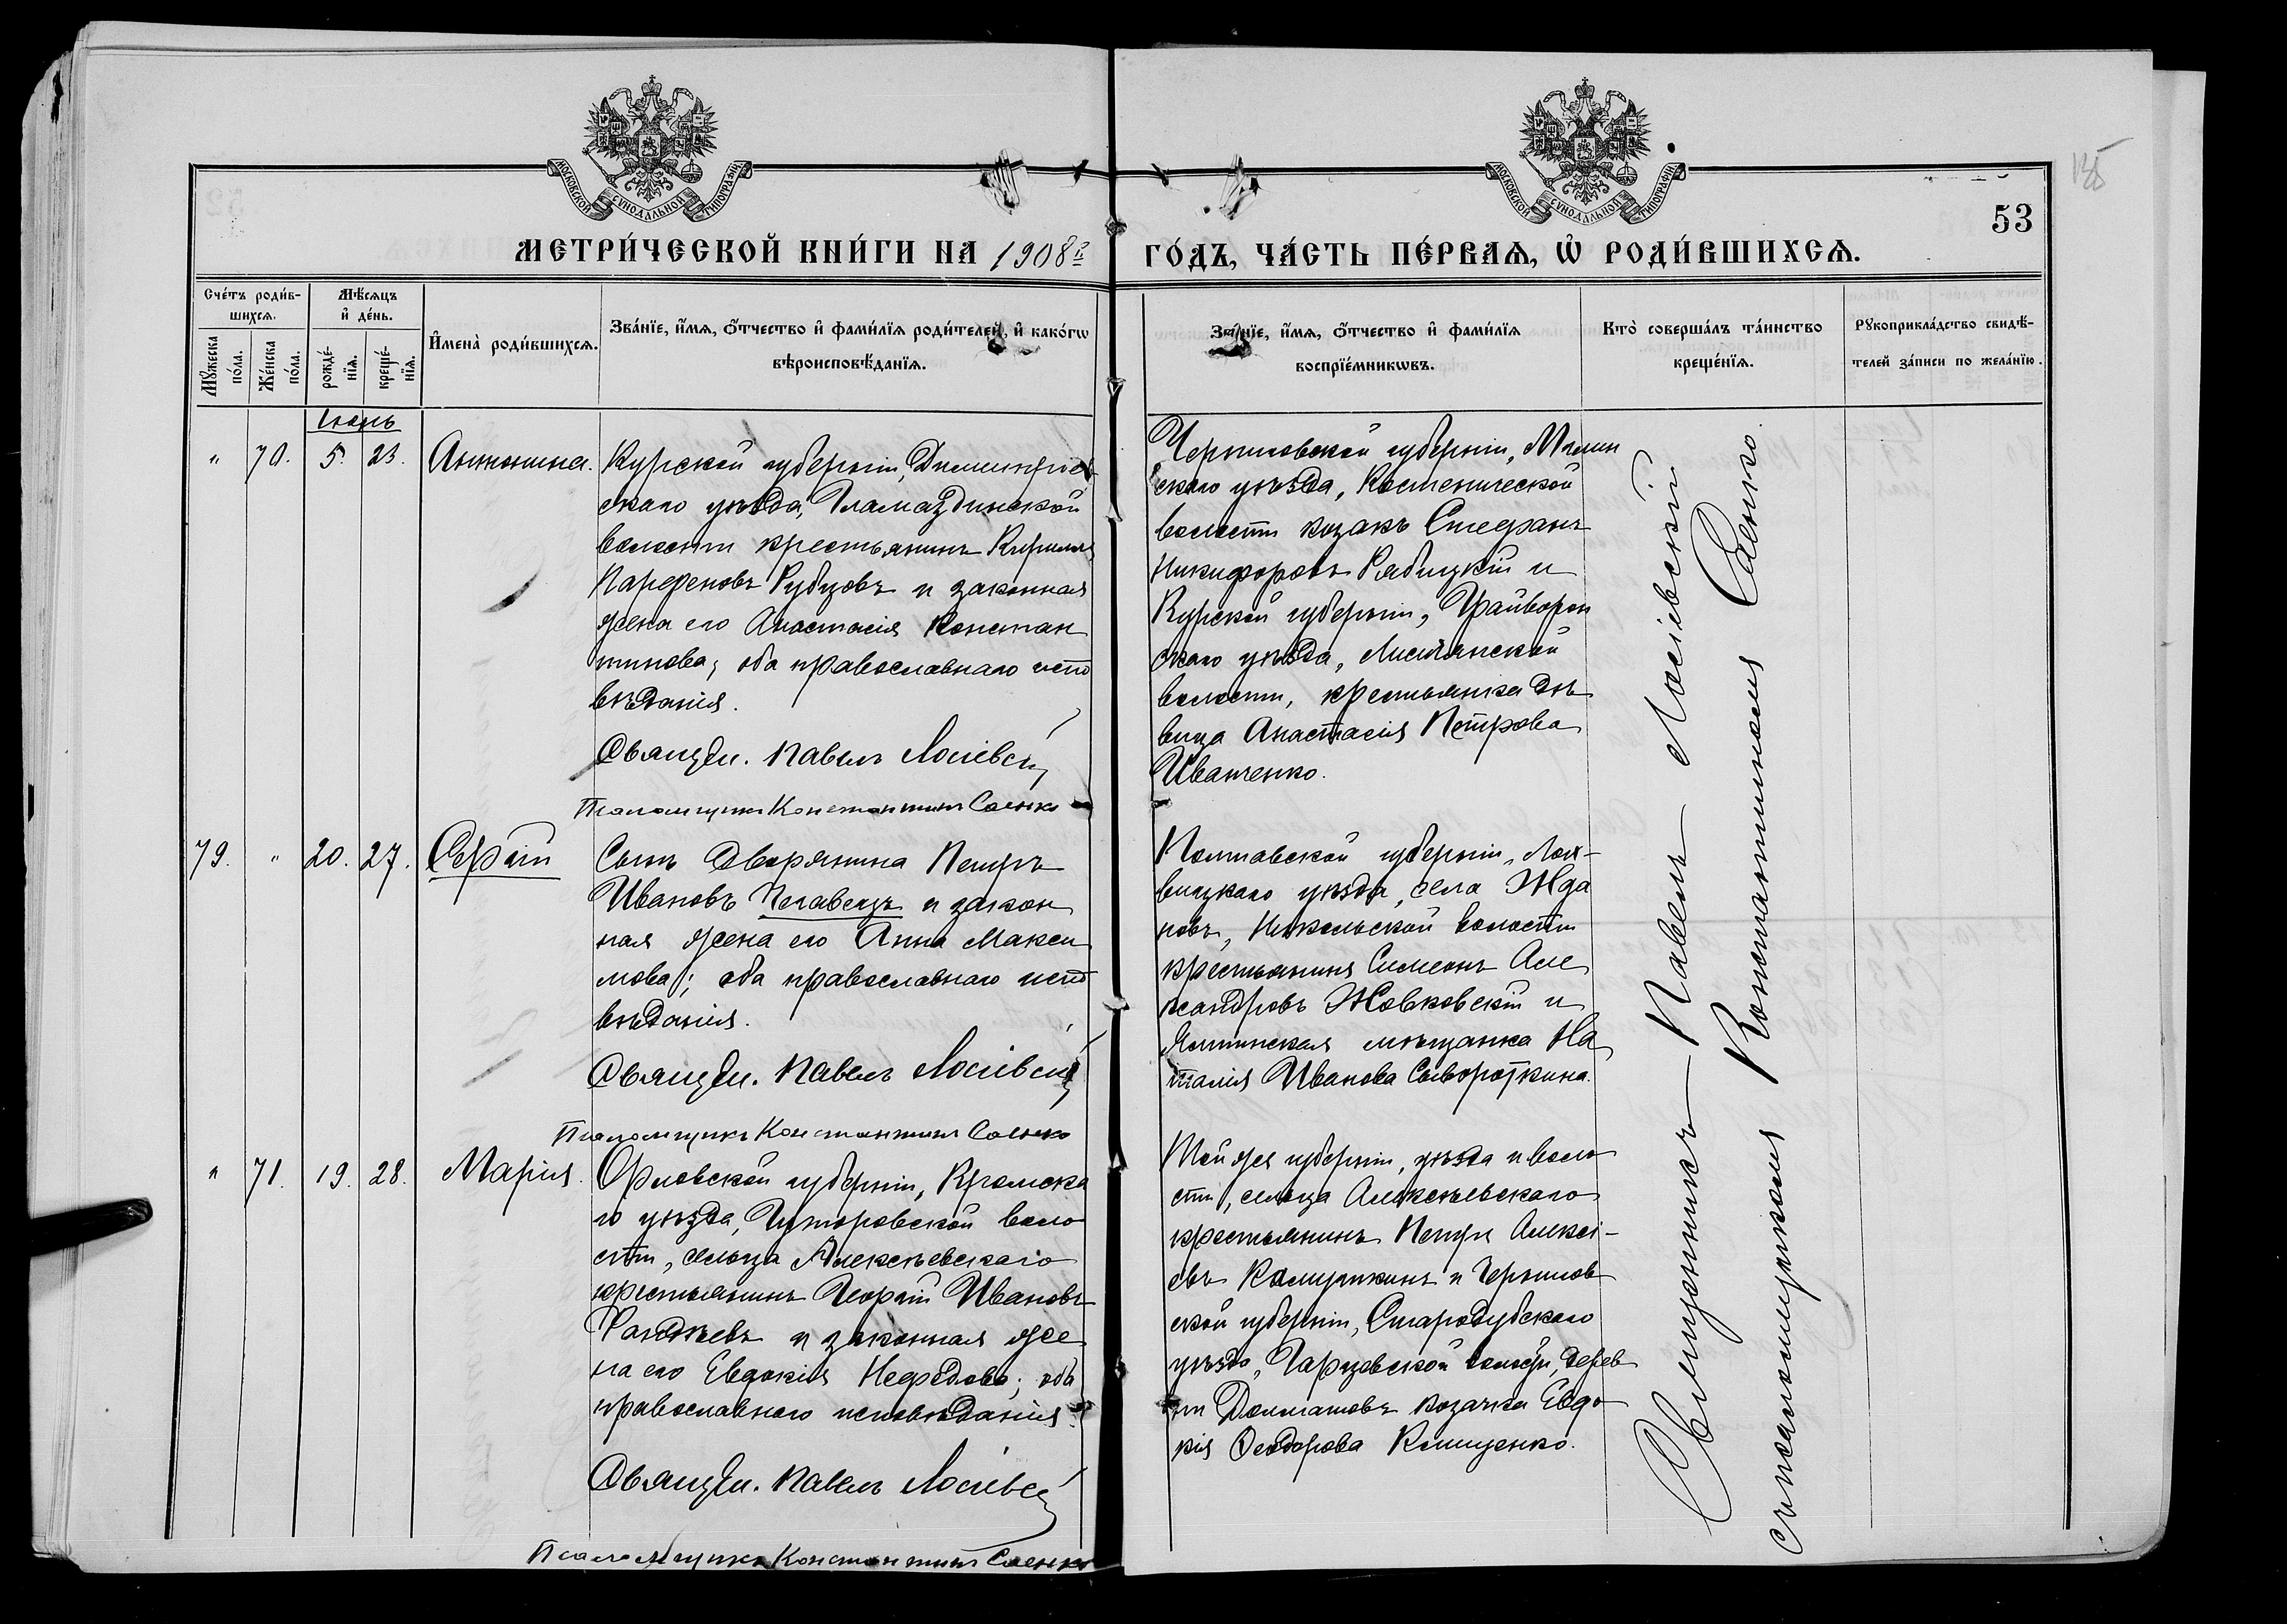 МОСКОВСКОЙ СУНОДАЛЬНОЙ ТИПОГРАФІИ
МЕТРИ́ЧЕСКОЙ КНИ́ГИ НА 1908й
Сче́тъ роди́в-
шихсѧ.
Мѣ́сѧцъ
и҆ де́нь.
Мꙋ́жеска
по́ла.
Же́нска
по́ла.
рожде́-
нїѧ.
креще́-
нїѧ.
И҆мена̀ роди́вшихсѧ.
Зва́нїе, и҆́мѧ, ѻ҆́тчество и҆ фами́лїѧ роди́телей, и҆ како́гѡ
вѣроисповѣ́данїѧ.
Іюнь
" 70. 5. 23. Антонина.
Курской губерніи, Дмитріев
скаго уѣзда,
волости крестьянинъ Кириллъ
Парфеновъ Рубцовъ и законная
жена его Анастасія Констан
тинова; оба православнаго испо
вѣданія.
Священ. Павелъ Лосіевскій
Псаломщикъ Константинъ Саенко
79. " 20. 27. Сергій
Сынъ Дворянина Петръ
Ивановъ Пелавецъ и закон
ная жена его Анна Макси
мова; оба православнаго испо
вѣданія.
Священ. Павелъ Лосіевскій
Псаломщикъ Константинъ Саенко
" 71. 19. 28. Марія.
Орловской губерніи, Кромска
го уѣзда, Гуторовской воло
сти, сельца Алексѣевскаго
крестьянинъ Георгій Ивановъ
Фандѣевъ и законная же
на его Евдокія Нефедова; оба
православнаго исповѣданія.
Священ. Павелъ Лосіевскій
Псаломщикъ Константинъ Саенко
МОСКОВСКОЙ СУНОДАЛЬНОЙ ТИПОГРАФІИ
53
ГО́ДЪ, ЧА́СТЬ ПЕ́РВАѦ, Ѡ҆ РОДИ́ВШИХСѦ.
Зва́нїе, и҆́мѧ, ѻ҆́тчество и҆ фами́лїѧ
воспрїе́мникѡвъ.
Кто̀ соверша́лъ та́инство
креще́нїѧ.
Рꙋкоприкла́дство свидѣ́-
телей за́писи по жела́нїю.
Черниговской губерніи, Мглин
скаго уѣзда, Костеничской
волости козакъ Стефанъ
Никифоровъ Рябицкій и
Курской губерніи, Грайворон
скаго уѣзда, Лисичанской
волости, крестьянка дѣ
вица Анастасія Петрова
Иванченко.
Полтавской губерніи, Лох-
вицкаго уѣзда, села Жда
новъ, Никольской волости
крестьянинъ Симеонъ Але
ксандровъ Жовковскій и
Ялтинская мѣщанка На
талія Иванова Сывороткина.
Той же губерніи, уѣзда и воло
сти, сельца Алексѣевскаго
крестьянинъ Петръ Алексі-
евъ Камушкинъ и Чернигов
ской губерніи, Стародубскаго
уѣзда, Гарцевской волости, дерев
ни Долматовъ козачка Евдо
кія Ѳеодорова Клищенко.
Священникъ Павелъ Лосіевскій
съ псаломщикомъ Константиномъ Саенко.